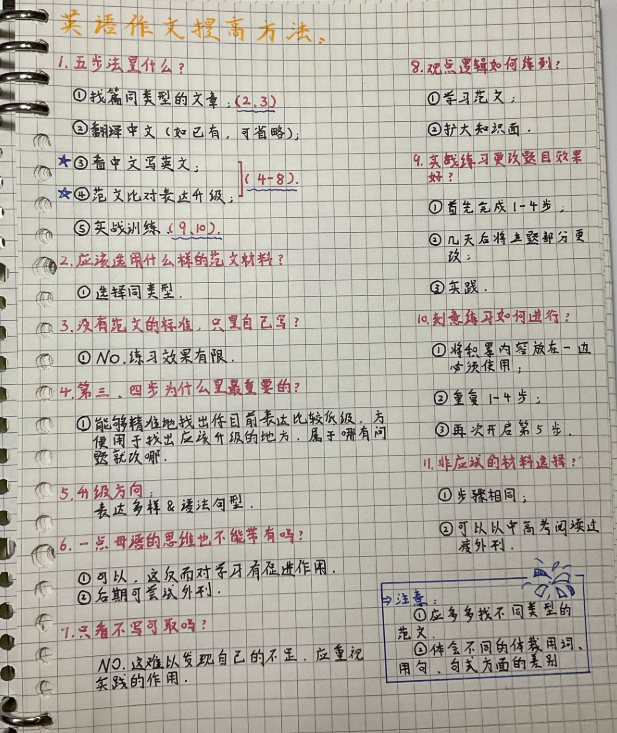 英语作文提高方法:
1.五步法是什么?
①找篇同类型的文章;(2.3)
②翻译中文(如已有,可省略);
★③看中文写英文;
★④范文比对表达升级;
](4-8).
⑤实战训练.(9.10).
2.应该选用什么样的范文材料?
①选择同类型.
3.没有范文的标准,只是自己写?
①NO.练习效果有限.
4.第三、四步为什么是最重要的?
①能够精准地找出你目前表达比较低级,方
便用于找出应该升级的地方.属于哪有问
题就改哪.
5.升级方向:
表达多样&语法句型.
6.一点母语的思维也不能带有吗?
①可以,这反而对学习有促进作用.
②后期可尝试外刊.
7.只看不写可取吗?
NO.这难以发现自己的不足.应重视
实践的作用.
8.观点逻辑如何练到?
①学习范文;
②扩大知识面.
9.实战练习更改题目效果
好?
①首先完成1-4步;
②几天后将主题部分更
改;
③实践.
10.刻意练习如何进行?
①将积累内容放在一边
必须使用;
②重复1-4步;
③再次开启第5步.
11.非应试的材料选择?
①步骤相同;
②可以从中高考阅读过
渡外刊.
⇒注意:
①应多多找不同类型的
范文.
②体会不同的体裁用词、
用句、句式方面的差别